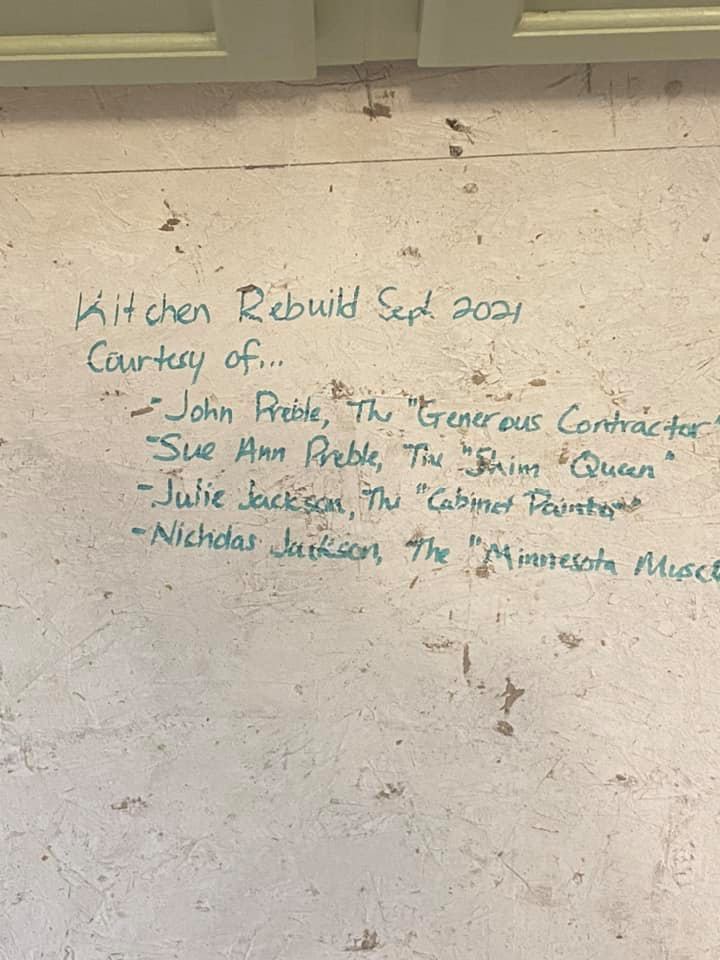 Kitchen Rebuild Sept. 2021
Courtesy of...
- John Preble, The "Generous Contractor"
- Sue Ann Preble, The "Shim Queen"
- Julie Jackson, The "Cabinet Painter"
- Nicholas Jackson, The "Minnesota Muscl